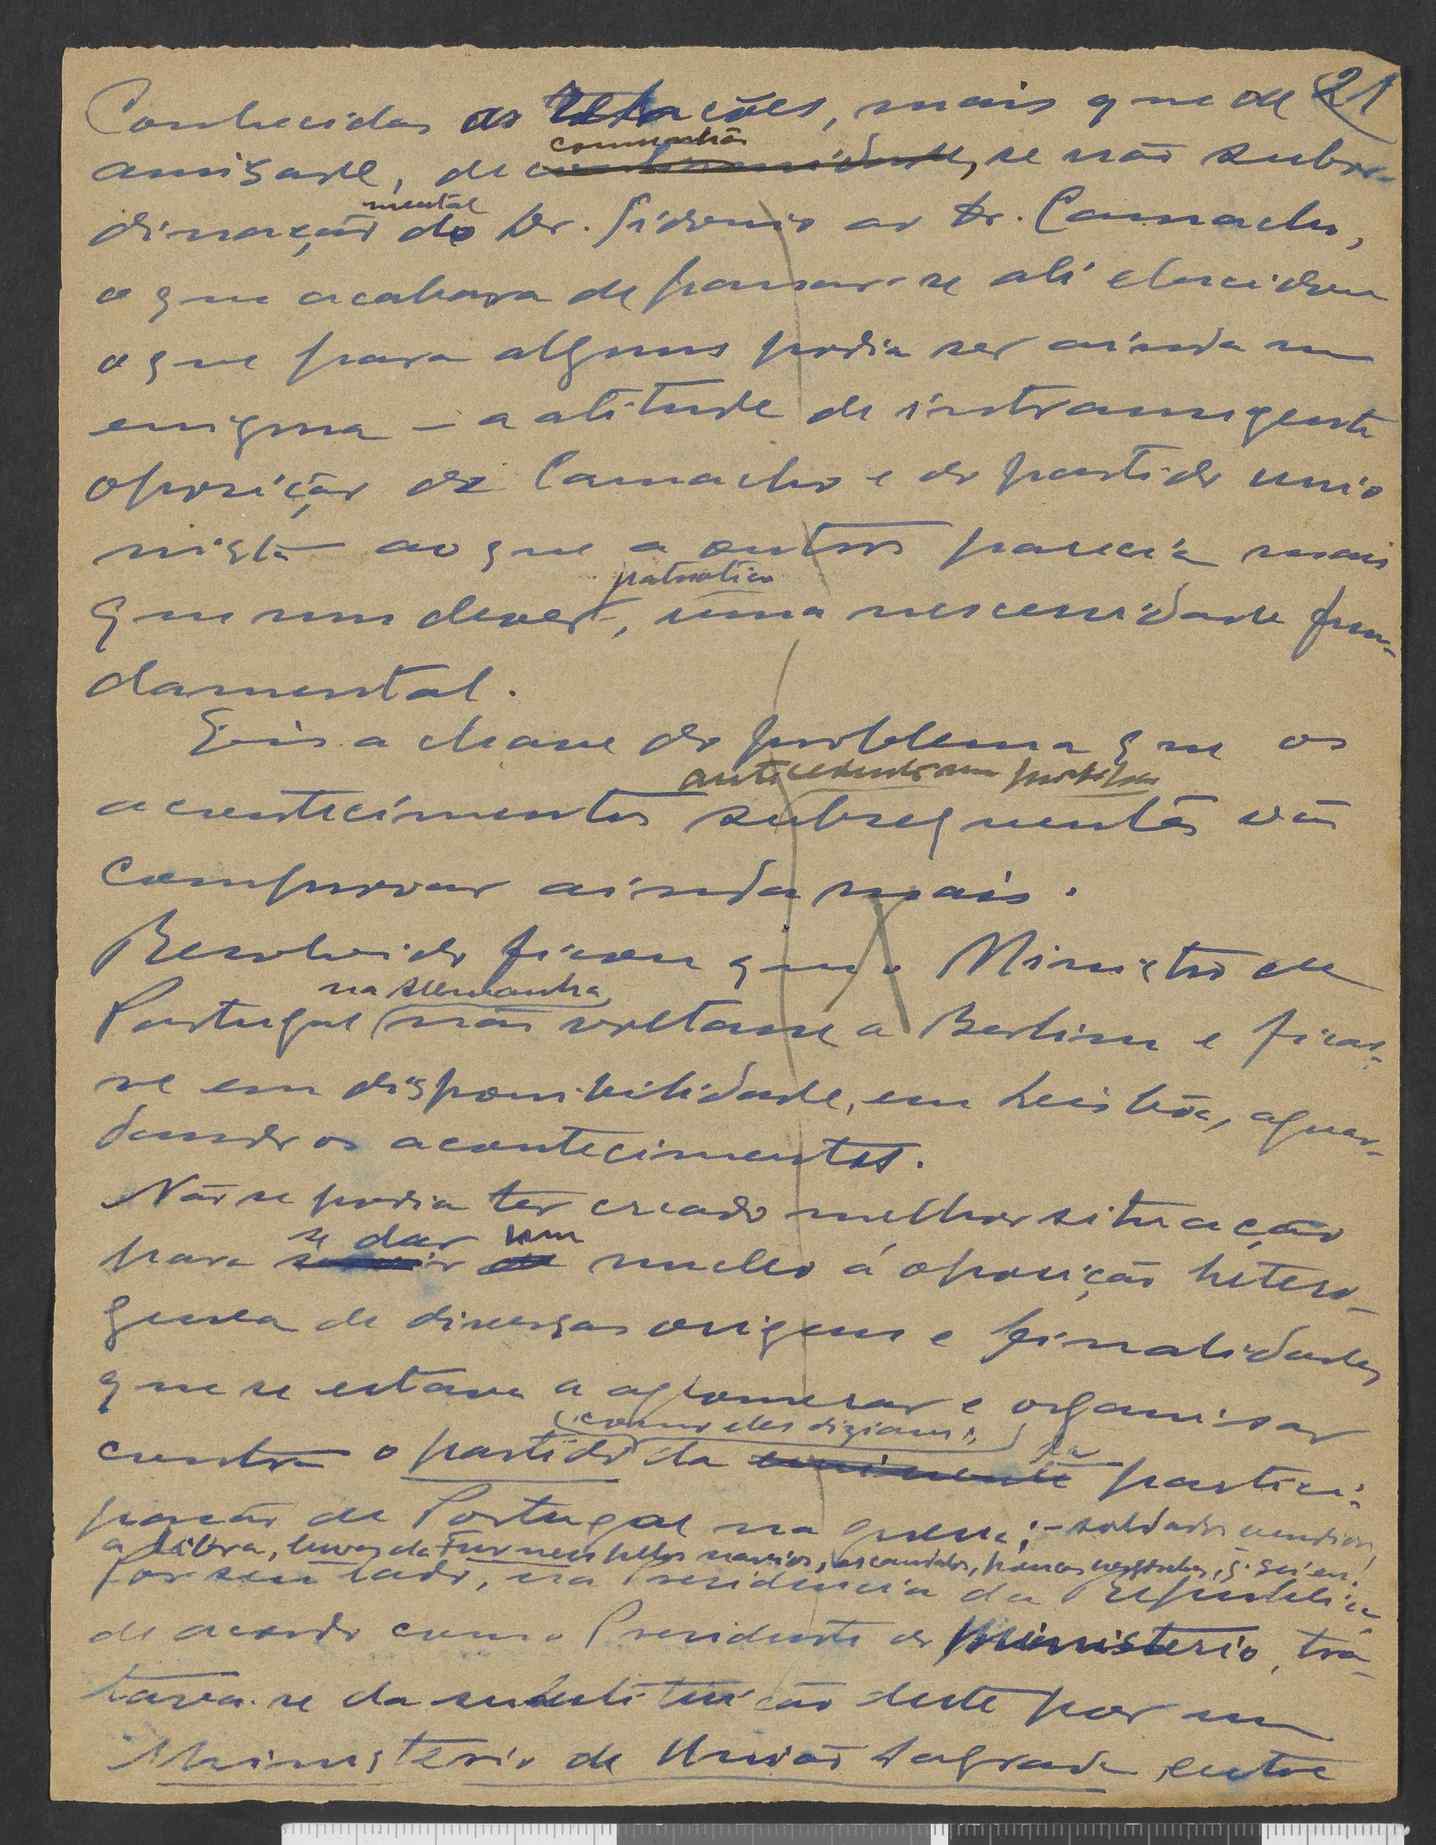 21
Conhecidas as relações, mais que de
amisade, de comunhão, se não subor-
dinação mental do Dr. Sidonio ao Dr. Camacho,
o que acabava de passar-se ali elucidou
o que para alguns podia ser ainda um
enigma — a atitude de intransigente
oposição de Camacho e do partido unio
nista ao que a outros parecia mais
que um dever patriotico, uma nescessidade fun-
damental.
Eis a chave do problema que os
acontecimentos subsequentes vão
comprovar ainda mais.
Resolvido ficou que o Ministro de
Portugal na Alemanha não voltasse a Berlim e ficas-
se em disponibilidade, em Lisbôa, aguar-
dando os acontecimentos.
Não se podia ter creado melhor situação
para se dar um nucleo á oposição hetero-
genea de diversas origens e finalidades
que se estava a aglomerar e organisar
contra o partido da (como eles diziam) partici-
pação de Portugal na guerra; — soldados vendidos,
a libra, luvas da Furness pelos navios,
Por seu lado, na Presidencia da Republica
de acordo com o Presidente do Ministerio, tra-
tava-se da substituição deste por um
Ministerio de União Sagrada, entre